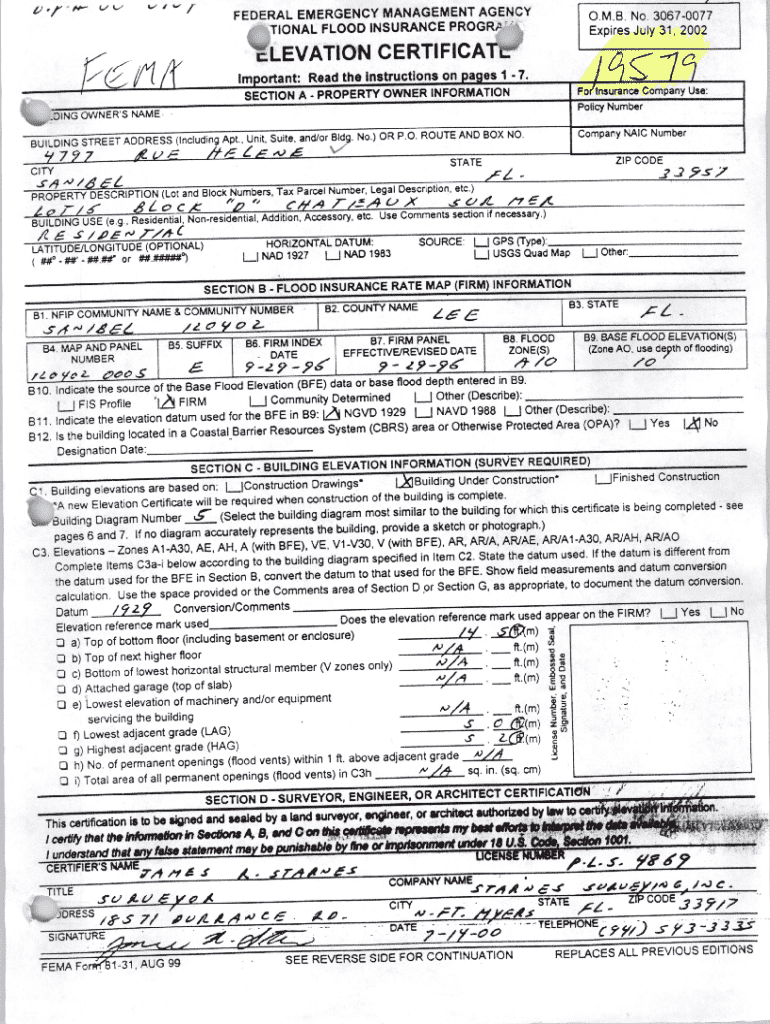 FEDERAL EMERGENCY MANAGEMENT AGENCY
TIONAL FLOOD INSURANCE PROGRA
O.M.B. No. 3067-0077
Expires July 31, 2002
FEMA
ELEVATION CERTIFICATE
19579
Important: Read the instructions on pages 1 - 7.
SECTION A - PROPERTY OWNER INFORMATION
For Insurance Company Use:
DING OWNER'S NAME
Policy Number
BUILDING STREET ADDRESS (Including Apt., Unit, Suite, and/or Bldg. No.) OR P.O. ROUTE AND BOX NO.
Company NAIC Number
4797 RUE HELENE
CITY STATE ZIP CODE
SANIBEL FL. 33957
PROPERTY DESCRIPTION (Lot and Block Numbers, Tax Parcel Number, Legal Description, etc.)
LOT 15 BLOCK "D" CHATEAUX SUR MER
BUILDING USE (e.g., Residential, Non-residential, Addition, Accessory, etc. Use Comments section if necessary.)
RESIDENTIAL
LATITUDE/LONGITUDE (OPTIONAL) HORIZONTAL DATUM: SOURCE: GPS (Type):
( ##° - ##' - ##.##" or ##.#####°) NAD 1927 NAD 1983 USGS Quad Map Other:
SECTION B - FLOOD INSURANCE RATE MAP (FIRM) INFORMATION
B1. NFIP COMMUNITY NAME & COMMUNITY NUMBER B2. COUNTY NAME B3. STATE
SANIBEL 120402 LEE FL.
B4. MAP AND PANEL NUMBER B5. SUFFIX B6. FIRM INDEX DATE B7. FIRM PANEL EFFECTIVE/REVISED DATE B8. FLOOD ZONE(S) B9. BASE FLOOD ELEVATION(S) (Zone AO, use depth of flooding)
120402 0005 E 9-29-96 9-29-96 A10 10'
B10. Indicate the source of the Base Flood Elevation (BFE) data or base flood depth entered in B9.
FIS Profile X FIRM Community Determined Other (Describe):
B11. Indicate the elevation datum used for the BFE in B9: X NGVD 1929 NAVD 1988 Other (Describe):
B12. Is the building located in a Coastal Barrier Resources System (CBRS) area or Otherwise Protected Area (OPA)? Yes X No
Designation Date:
SECTION C - BUILDING ELEVATION INFORMATION (SURVEY REQUIRED)
C1. Building elevations are based on: Construction Drawings* X Building Under Construction* Finished Construction
*A new Elevation Certificate will be required when construction of the building is complete.
Building Diagram Number 5 (Select the building diagram most similar to the building for which this certificate is being completed - see
pages 6 and 7. If no diagram accurately represents the building, provide a sketch or photograph.)
C3. Elevations – Zones A1-A30, AE, AH, A (with BFE), VE, V1-V30, V (with BFE), AR, AR/A, AR/AE, AR/A1-A30, AR/AH, AR/AO
Complete Items C3a-i below according to the building diagram specified in Item C2. State the datum used. If the datum is different from
the datum used for the BFE in Section B, convert the datum to that used for the BFE. Show field measurements and datum conversion
calculation. Use the space provided or the Comments area of Section D or Section G, as appropriate, to document the datum conversion.
Datum 1929 Conversion/Comments
Elevation reference mark used Does the elevation reference mark used appear on the FIRM? Yes No
a) Top of bottom floor (including basement or enclosure) 14 . 5 ft.(m)
b) Top of next higher floor N/A . ft.(m)
c) Bottom of lowest horizontal structural member (V zones only) N/A . ft.(m)
d) Attached garage (top of slab) N/A . ft.(m)
e) Lowest elevation of machinery and/or equipment
servicing the building N/A . ft.(m)
f) Lowest adjacent grade (LAG) 5 . 0 ft.(m)
g) Highest adjacent grade (HAG) 5 . 2 ft.(m)
h) No. of permanent openings (flood vents) within 1 ft. above adjacent grade N/A
i) Total area of all permanent openings (flood vents) in C3h N/A sq. in. (sq. cm)
License Number, Embossed Seal,
Signature, and Date
SECTION D - SURVEYOR, ENGINEER, OR ARCHITECT CERTIFICATION
This certification is to be signed and sealed by a land surveyor, engineer, or architect authorized by law to certify elevation information.
I certify that the information in Sections A, B, and C on this certificate represents my best efforts to interpret the data available.
I understand that any false statement may be punishable by fine or imprisonment under 18 U.S. Code, Section 1001.
CERTIFIER'S NAME LICENSE NUMBER
JAMES R. STARNES P.L.S. 4869
TITLE COMPANY NAME
SURVEYOR STARNES SURVEYING, INC.
DDRESS CITY STATE ZIP CODE
18571 DURRANCE RD. N. FT. MYERS FL. 33917
SIGNATURE DATE TELEPHONE
7-14-00 (941) 543-3335
FEMA Form 81-31, AUG 99 SEE REVERSE SIDE FOR CONTINUATION REPLACES ALL PREVIOUS EDITIONS